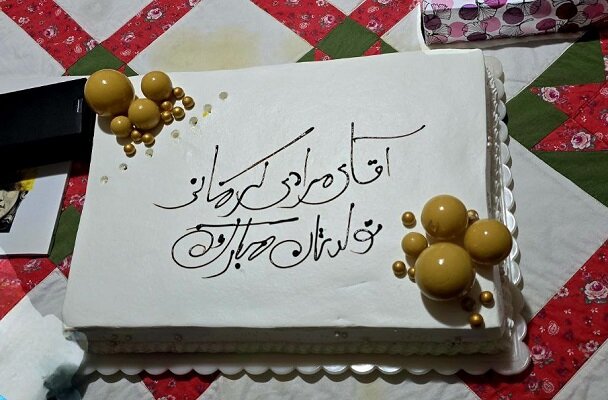 آقای مرادی کرمانی
تولدتان مبارک